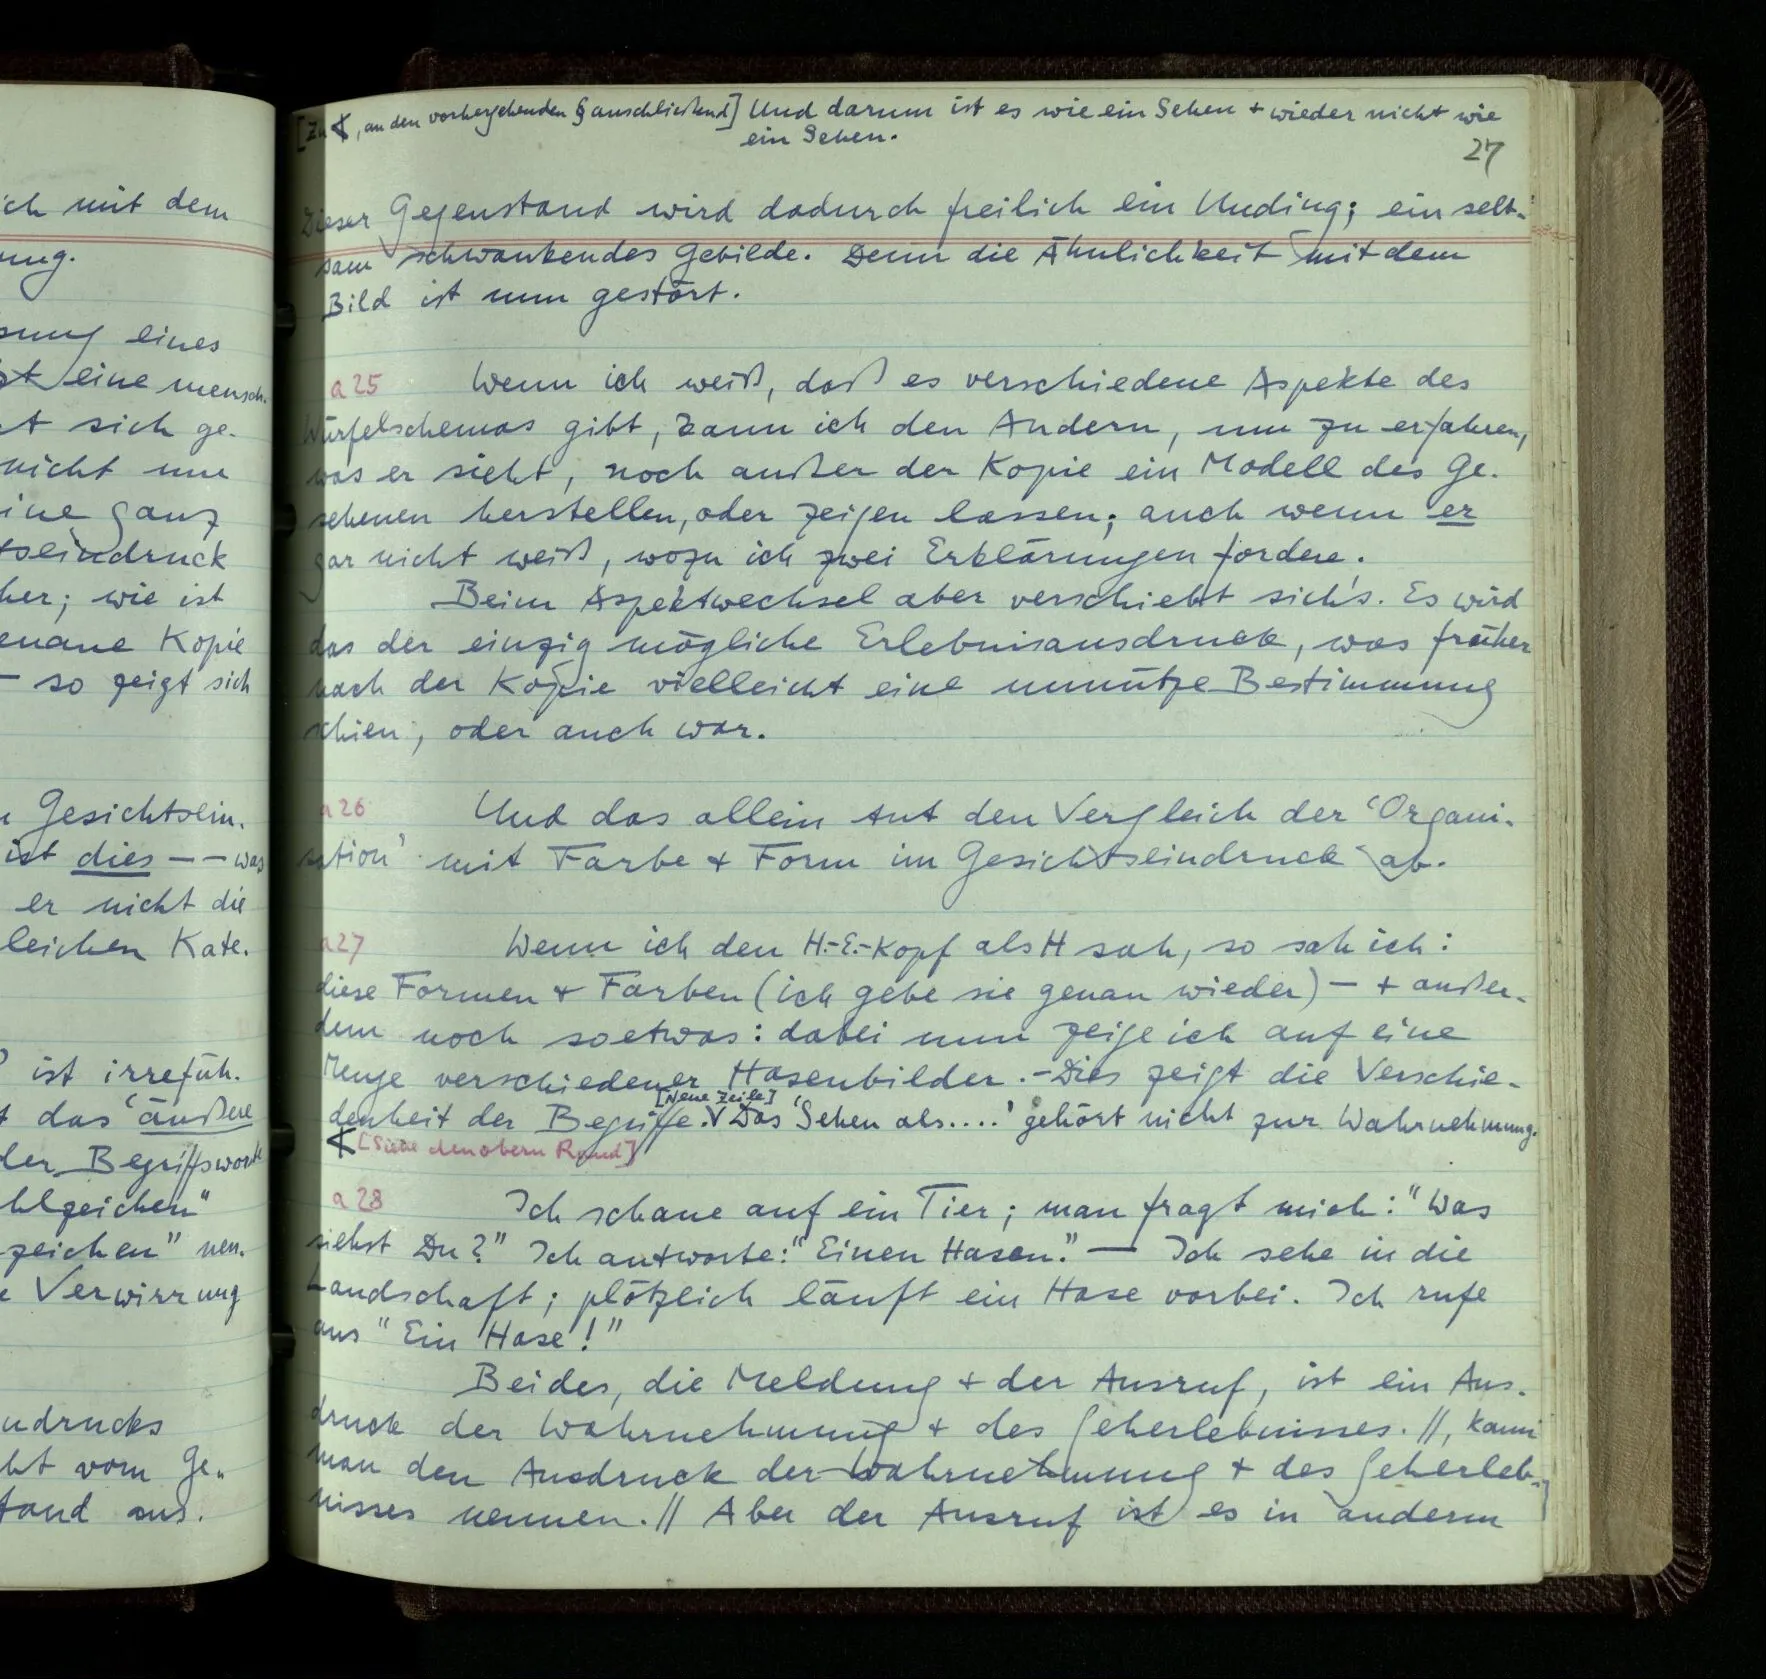 ich mit dem
ung.
sung eines
eine mensch.
sich ge.
nicht nur
ine ganz
tseindruck
her; wie ist
enaue Kopie
— so zeigt sich
Gesichtsein.
ist dies — — was
er nicht die
leichen Kate.
ist irrefüh.
das 'äußere
der Begriffsworte
hlzeichen"
zeichen" nen.
Verwirrung
ndrucks
ht vom Ge„
tand aus.
[Zu ∢, an den vorhergehenden § anschließend] Und darum ist es wie ein Sehen + wieder nicht wie
ein Sehen.
27
Dieser Gegenstand wird dadurch freilich ein Unding; ein selt-
sam schwankendes Gebilde. Denn die Ähnlichkeit mit dem
Bild ist nun gestört.
a 25 Wenn ich weiß, daß es verschiedene Aspekte des
Würfelschemas gibt, kann ich den Andern, um zu erfahren,
was er sieht, noch außer der Kopie ein Modell des Ge.
sehenen herstellen, oder zeigen lassen; auch wenn er
gar nicht weiß, wozu ich zwei Erklärungen fordere.
Beim Aspektwechsel aber verschiebt sich's. Es wird
das der einzig mögliche Erlebnisausdruck, was früher
nach der Kopie vielleicht eine unnütze Bestimmung
schien, oder auch war.
a 26 Und das allein tut den Vergleich der 'Organi-
sation' mit Farbe + Form im Gesichtseindruck ab.
a 27 Wenn ich den H.-E.-Kopf als H sah, so sah ich:
diese Formen + Farben (ich gebe sie genau wieder) — + außer-
dem noch so etwas: dabei nun zeige ich auf eine
Menge verschiedener Hasenbilder. – Dies zeigt die Verschie-
[Neue Zeile]
denheit der Begriffe. ∨ Das 'Sehen als....' gehört nicht zur Wahrnehmung.
∢ [Siehe den obern Rand]
a 28 Ich schaue auf ein Tier; man fragt mich: "Was
siehst Du?" Ich antworte: "Einen Hasen." — Ich sehe in die
Landschaft; plötzlich läuft ein Hase vorbei. Ich rufe
aus "Ein Hase!"
Beides, die Meldung + der Ausruf, ist ein Aus.
druck der Wahrnehmung + des Seherlebnisses. //, kann
man den Ausdruck der Wahrnehmung + des Seherleb-
nisses nennen. // Aber der Ausruf ist es in anderm